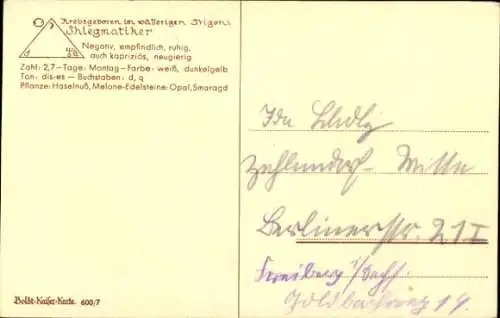 Krebsgeboren im wässerigen Trigon:
Phlegmatiker
Negativ, empfindlich, ruhig,
auch kapriziös, neugierig
Zahl: 2,7 – Tage: Montag – Farbe: weiß, dunkelgelb
Ton: dis-es – Buchstaben: d, q
Pflanze: Haselnuß, Melone – Edelsteine: Opal, Smaragd
Ida
Zehlendorf - Mitte
Berlinerstr. 21 I
Freiberg i/Sachs.
19
600/7